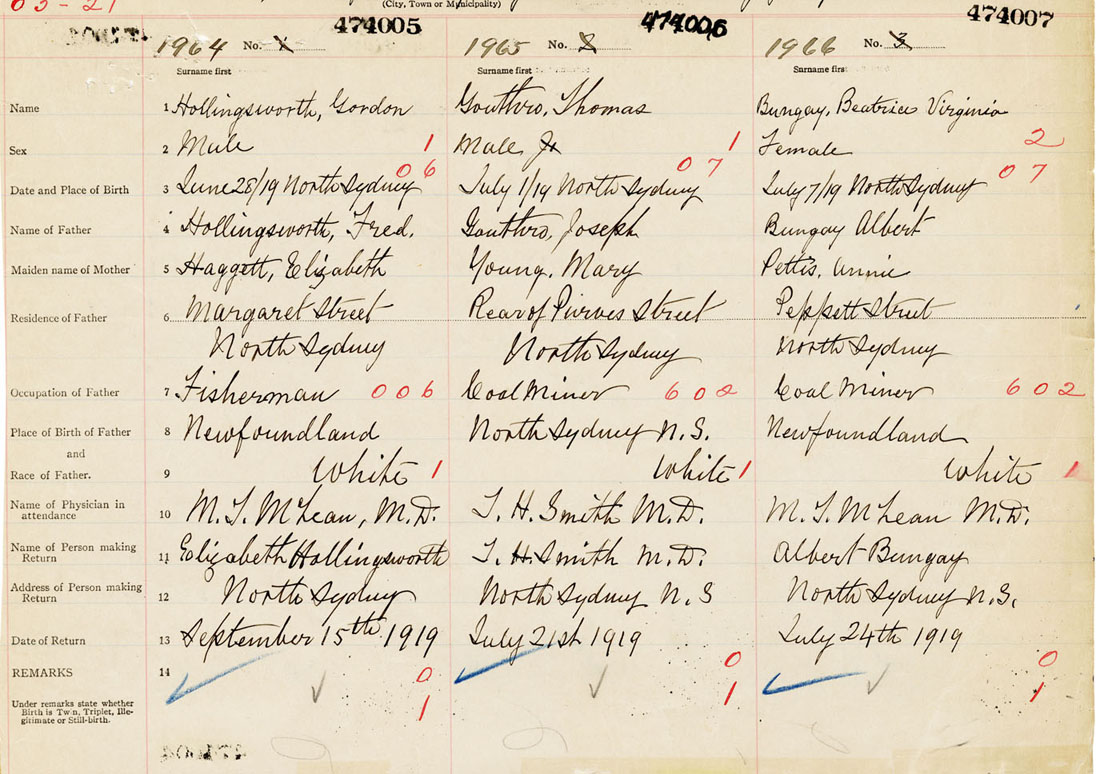 03-21
(City, Town or Municipality)
474005 474006 474007
1964 No. 1 1965 No. 2 1966 No. 3
Surname first Surname first Surname first
Name 1 Hollingsworth, Gordon Gouthro, Thomas Bungay, Beatrice Virginia
Sex 2 Male 1 Male Jr 1 Female 2
06 07 07
Date and Place of Birth 3 June 28/19 North Sydney July 1/19 North Sydney July 7/19 North Sydney
Name of Father 4 Hollingsworth, Fred. Gouthro, Joseph Bungay Albert
Maiden name of Mother 5 Haggett, Elizabeth Young, Mary Pettis, Annie
Residence of Father 6 Margaret Street Rear of Purves Street Peppett Street
North Sydney North Sydney North Sydney
Occupation of Father 7 Fisherman 006 Coal Miner 602 Coal Miner 602
Place of Birth of Father 8 Newfoundland North Sydney N.S. Newfoundland
and
Race of Father. 9 White 1 White 1 White 1
Name of Physician in
attendance 10 M. T. McLean, M.D. T. H. Smith M.D. M. T. McLean M.D.
Name of Person making
Return 11 Elizabeth Hollingsworth T. H. Smith M.D. Albert Bungay
Address of Person making
Return 12 North Sydney North Sydney N.S North Sydney N.S.
Date of Return 13 September 15th 1919 July 21st 1919 July 24th 1919
REMARKS 14 0 0 0
Under remarks state whether
Birth is Twin, Triplet, Ille-
gitimate or Still-birth. 1 1 1